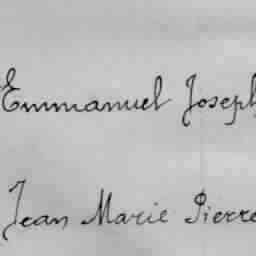 Emmanuel Joseph
Jean Marie Pierre